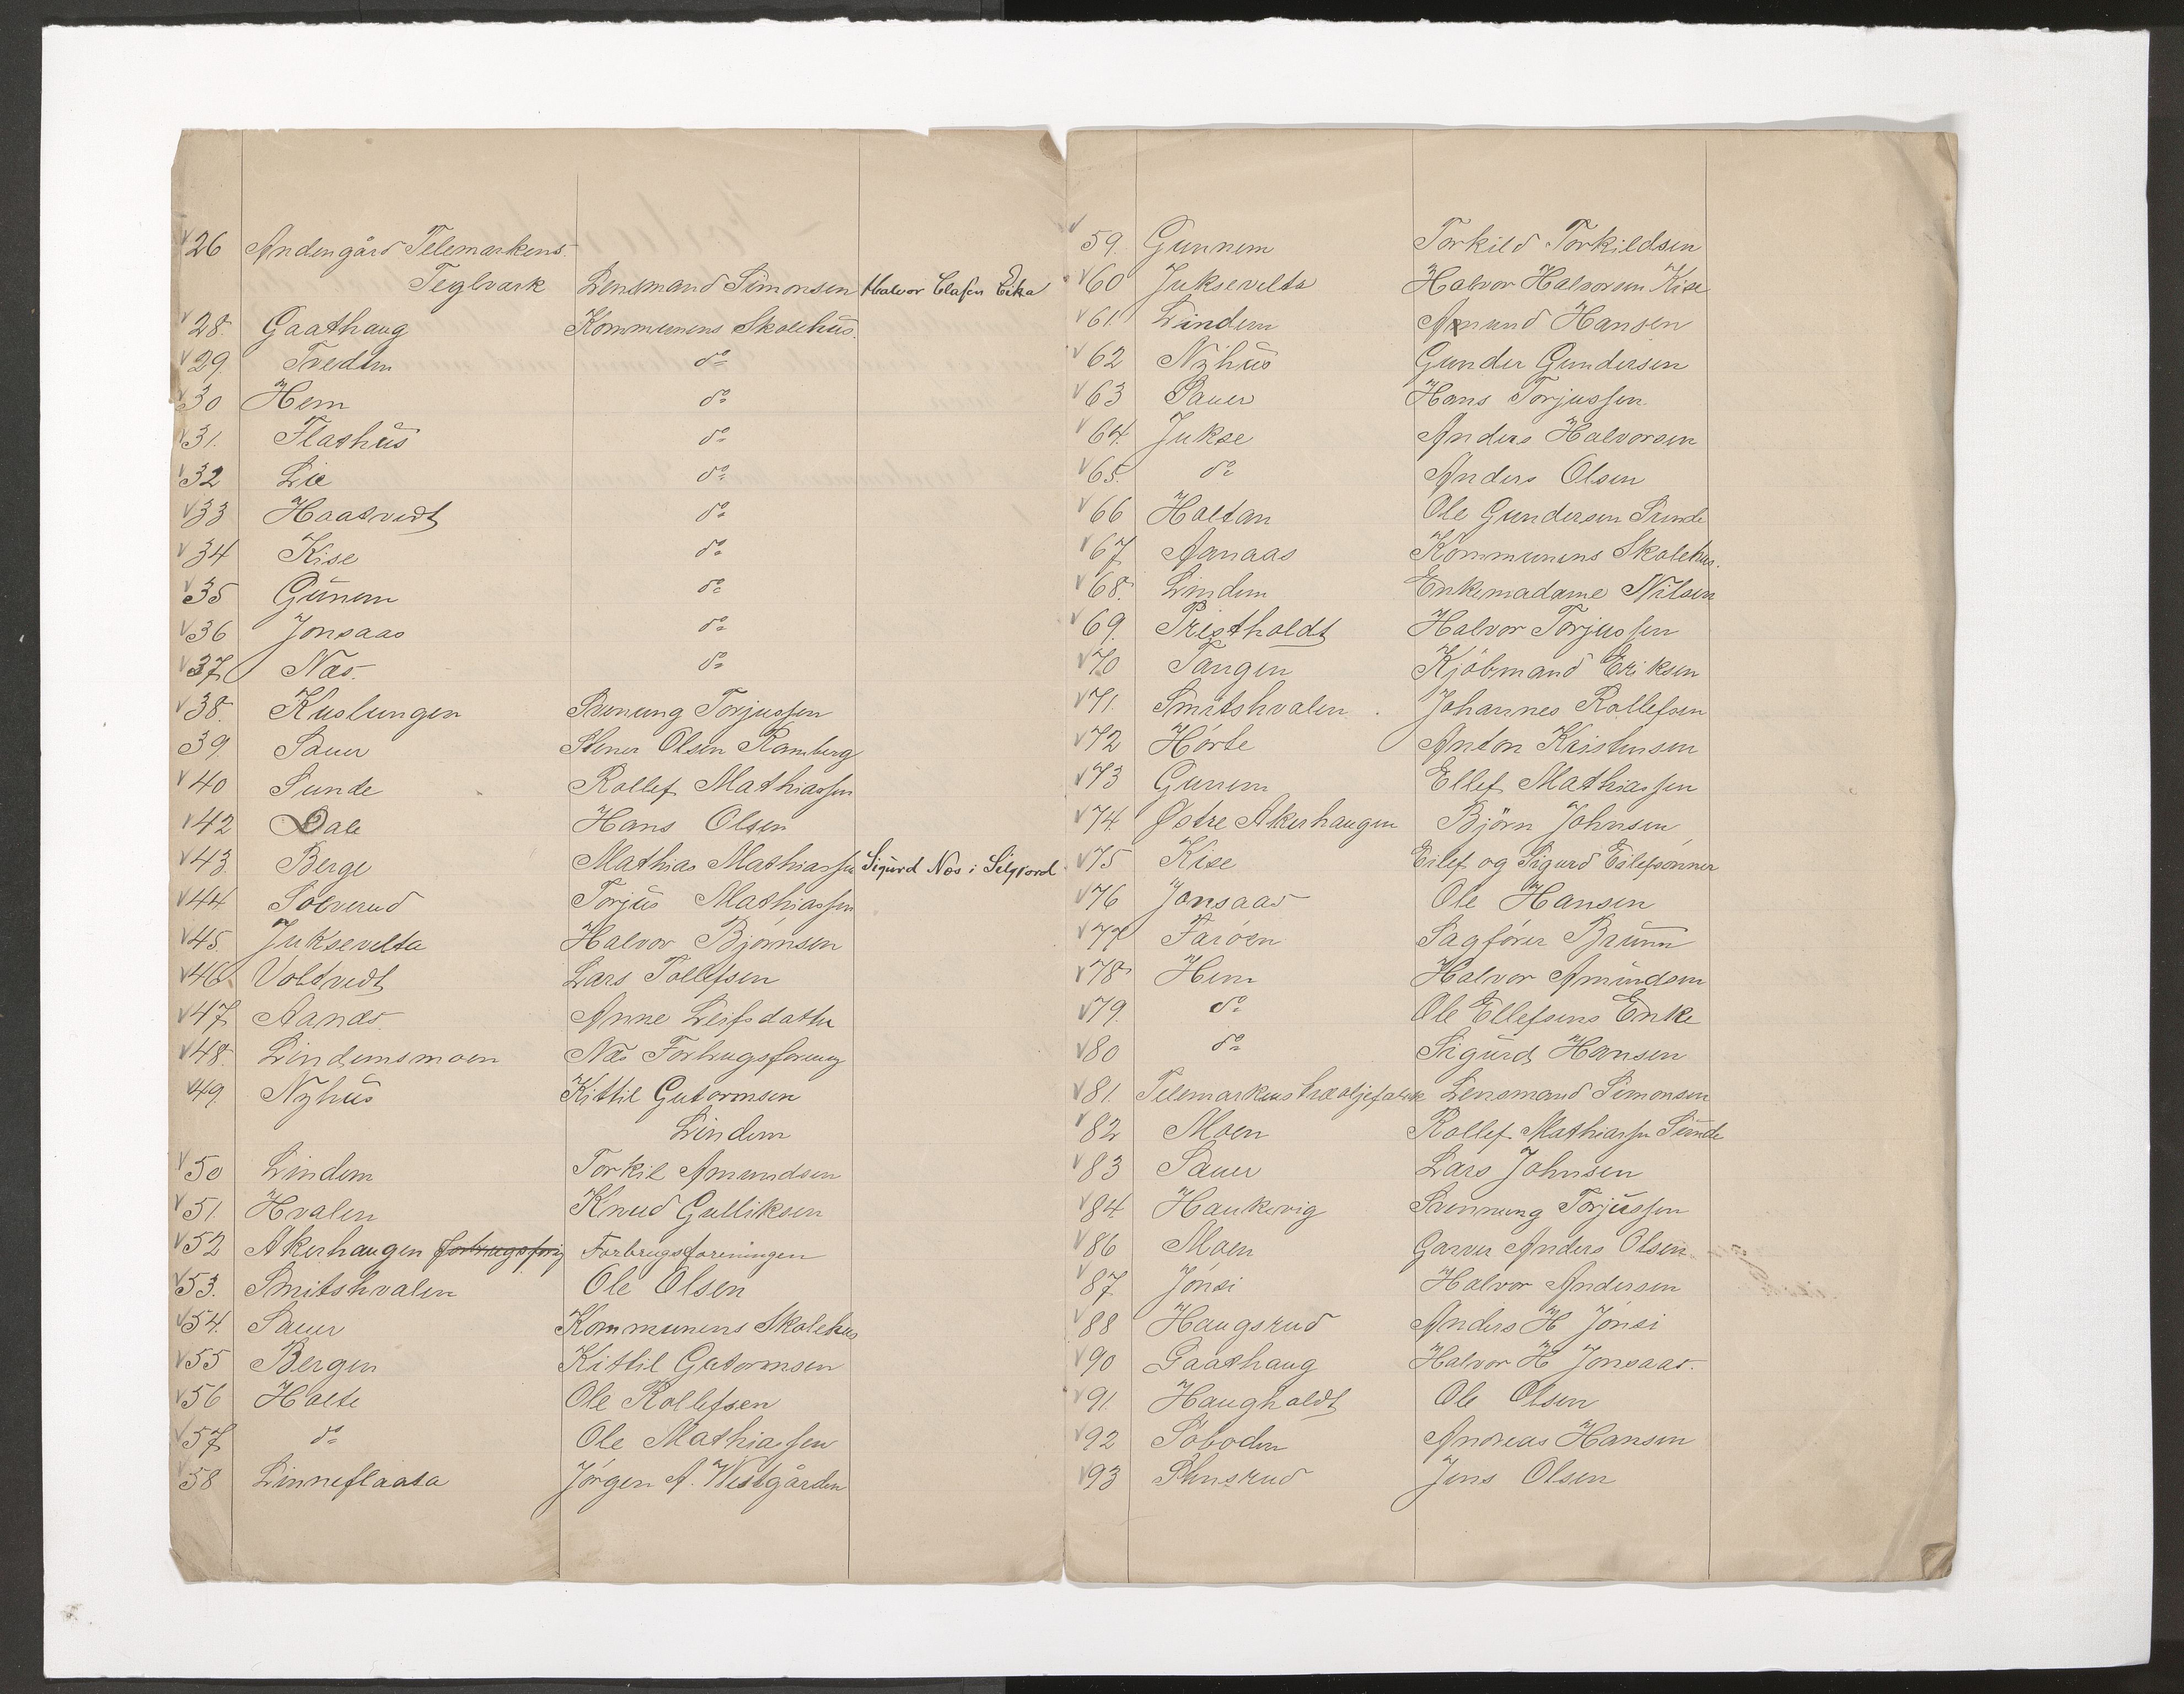 26 Andengård Telemarkens
Teglverk Lensmand Simonsen Halvor Olafsen Eika
28. Gaathaug Kommunens Skolehus.
29. Tvedten do
30 Hem do
31. Flathus do
32 Lie do
33 Haatvedt do
34 Kise do
35 Gunem do
36 Jonsaas do
37 Næs. do
38. Kuslungen Svenung Torjussen
39. Sauer Stener Olsen Ramberg
40 Sunde Rollef Mathiassen
42 Dale Hans Olsen
43. Berge Mathias Mathiassen Sigurd Næs i Silgjord
44 Solverud Torjus Mathiassen
45. Juksevelta Halvor Bjørnsen
46. Voldvedt Lars Tollefsen
47. Aanæs Anne Leifsdatter
48. Lindemsmoen Næs Forbrugsforening
49. Nyhus Kittil Gutormsen
Lindem
50 Lindem Torkil Amundsen
51. Hvalen Knud Gulliksen
52 Akerhaugen Forbrugsforeningen
53. Smitshvalen Ole Olsen
54. Sauer Kommunens Skolehus
55 Bergen Kittil Gutormsen
56 Holte Ole Rollefsen
57 do Ole Mathiassen
58 Linneflaata Jørgen A. Westgården
59. Gunnem Torkild Torkildsen
60 Juksevelta Halvor Halvorsen Kise
61. Lindem Amund Hansen
62 Nyhus Gunder Gundersen
63 Sauer Hans Torjussen
64. Jukse Anders Halvorsen
65. do Anders Olsen
66 Holtan Ole Gundersen Sunde
67. Aanaas Kommunens Skolehus.
68. Lindem Enkemadame Nilsen
69. Pristholdt Halvor Torjussen
70 Tangen Kjöbmand Eriksen
71. Smitshvalen Johannes Rollefsen
72 Hörte Anton Kristensen
73 Gunem Ellef Mathiassen
74. Østre Akerhaugen Björn Johnsen
75 Kise Eilef og Sigurd Eilefsønner
76 Jonsaas Ole Hansen
77 Faröen Sagförer Bruun
78 Hem Halvor Amundsen
79. do Ole Ellefsens Enke
80 do Sigurd Hansen
81. Telemarkens træoljefabrik Lensmand Simonsen
82 Moen Rollef Mathiassen Sunde
83 Sauer Lars Johnsen
84 Haukevig Svennung Torjussen
86 Moen Garver Anders Olsen
87. Jönsi Halvor Andersen
88 Haugsrud Anders H Jönsi
90 Gaathaug Halvor H Jonsaas.
91. Haugholdt Ole Olsen
92 Söboden Andreas Hansen
93 Stensrud Jens Olsen